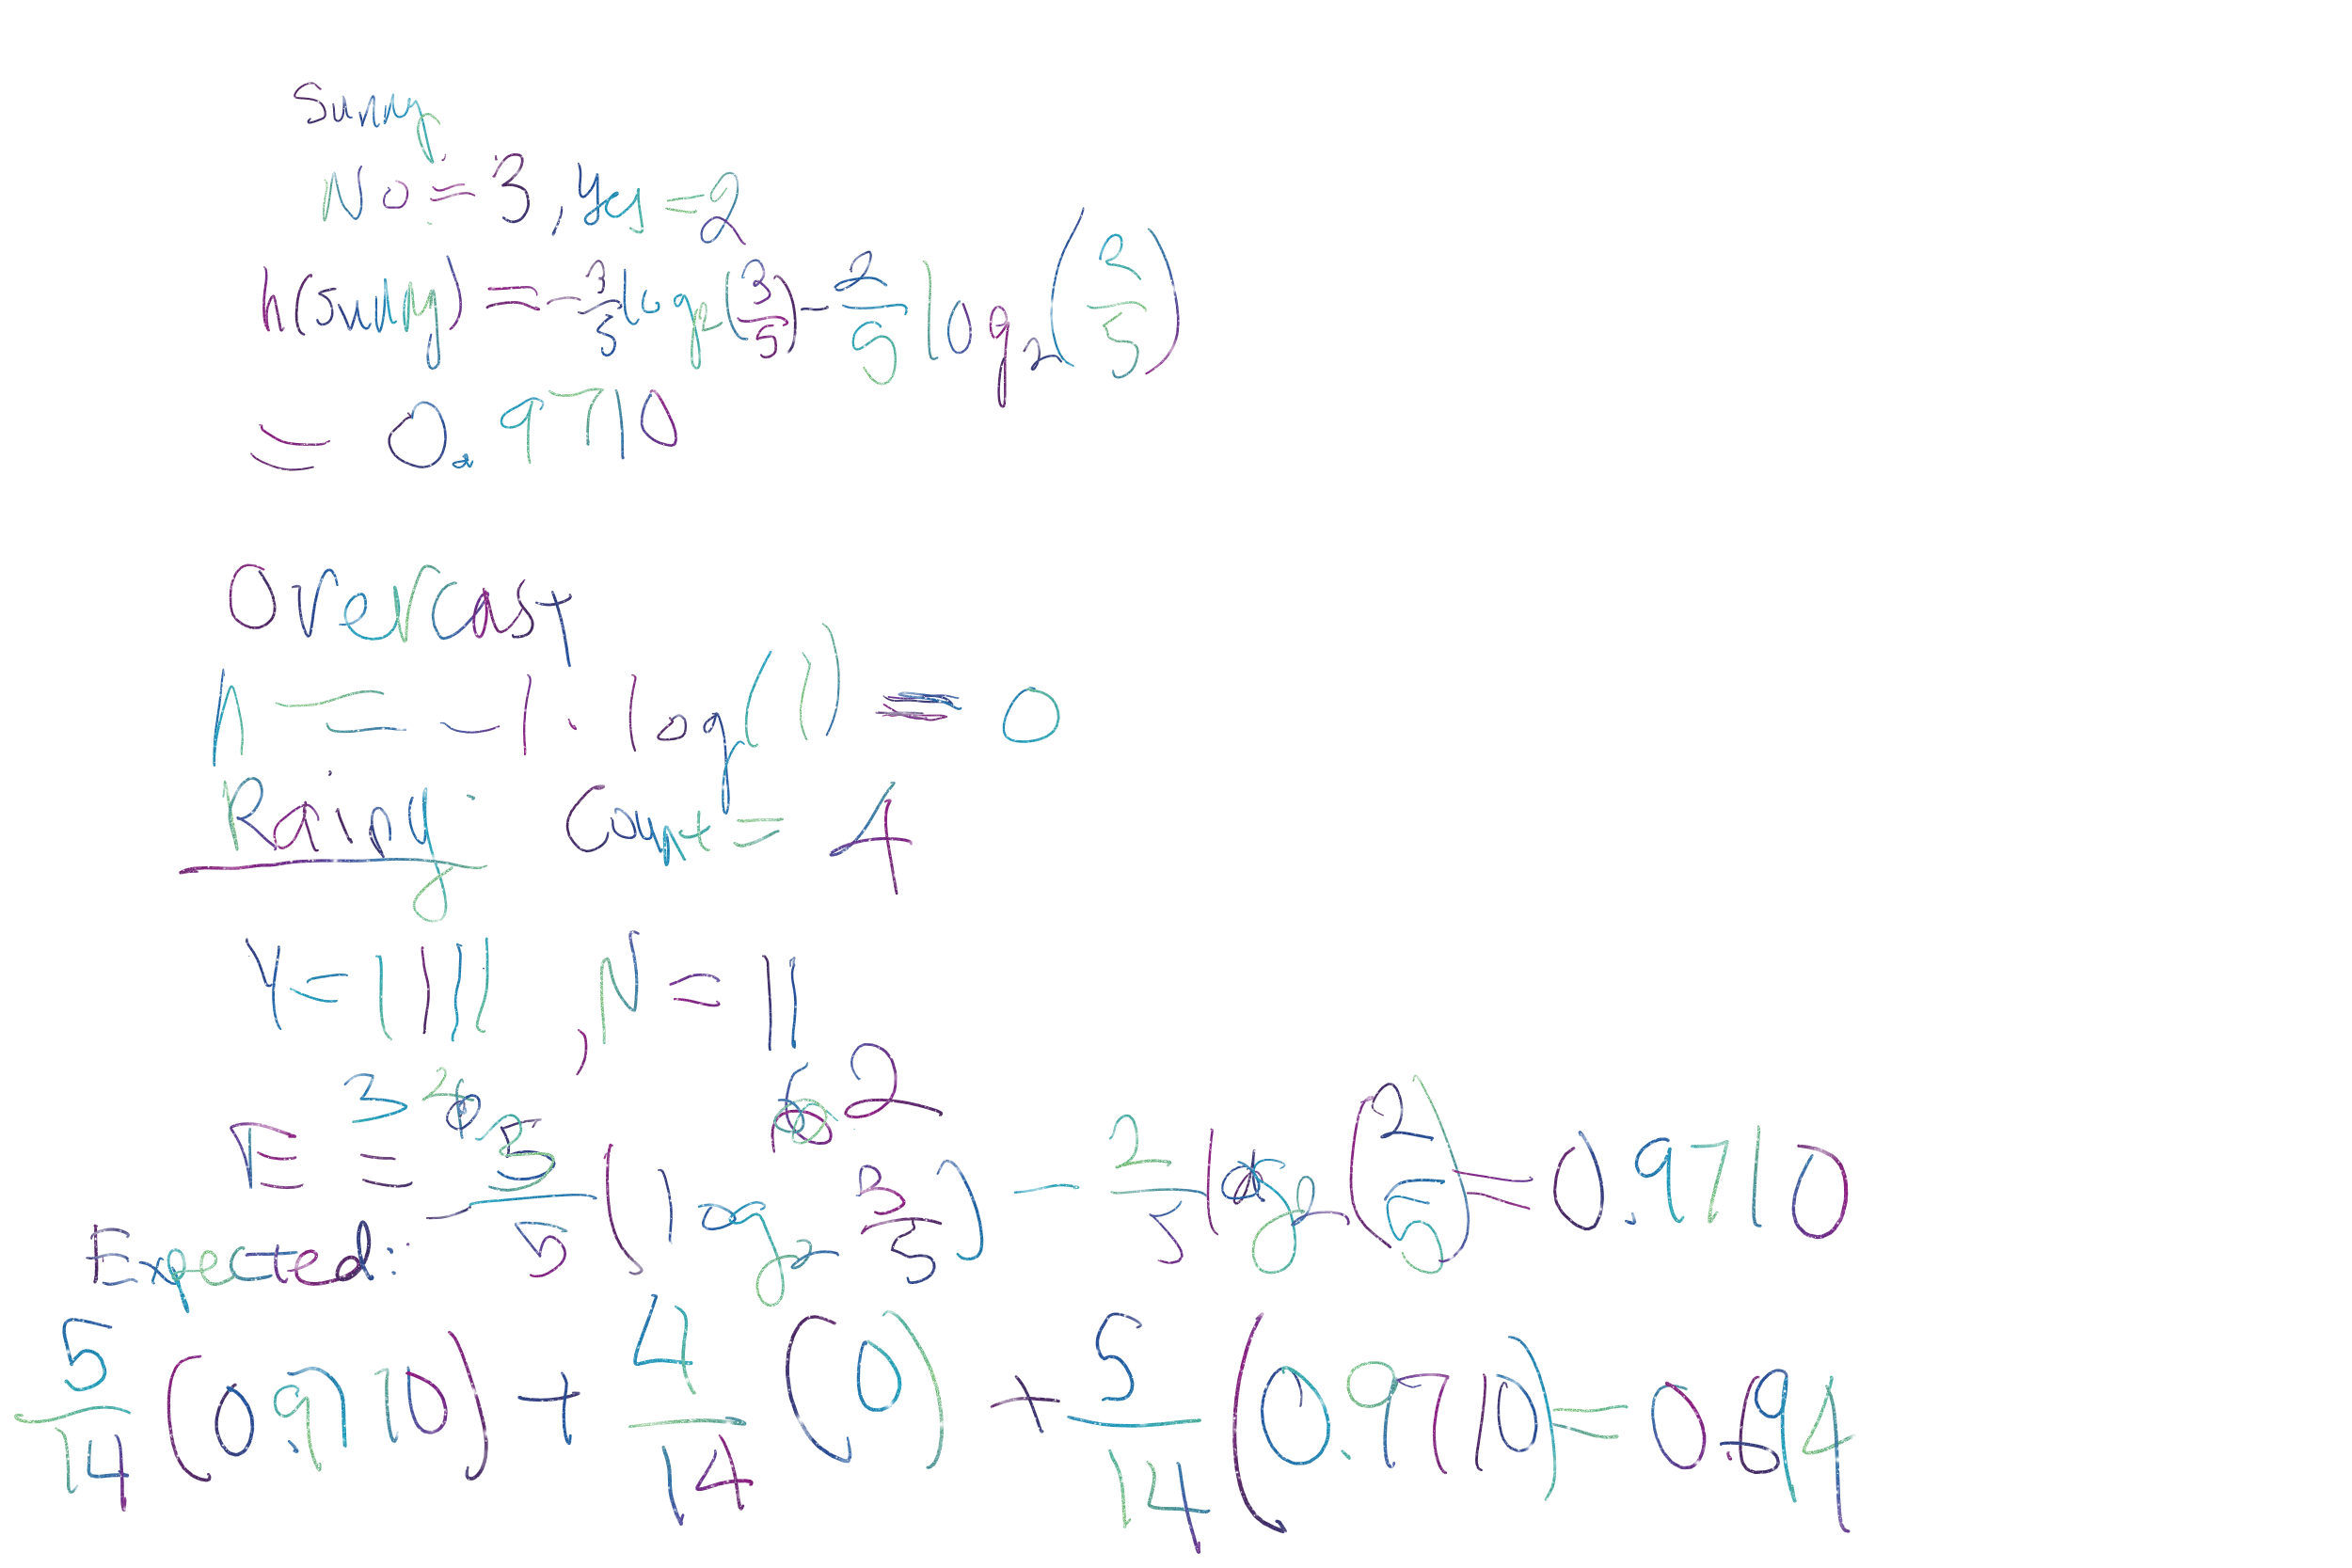 Sunny
No = 3, Yes = 2
h(sunny) = -3/5 log2(3/5) - 2/5 log2(2/5)
= 0.9710
Overcast
h = -1 . log(1) = 0
Rainy: Count = 4
Y = ||||, N = ||
E = -3/5 (log2 3/5) - 2/5 log2(2/5) = 0.9710
Expected:
5/14 (0.9710) + 4/14 (0) + 5/14 (0.9710) = 0.694